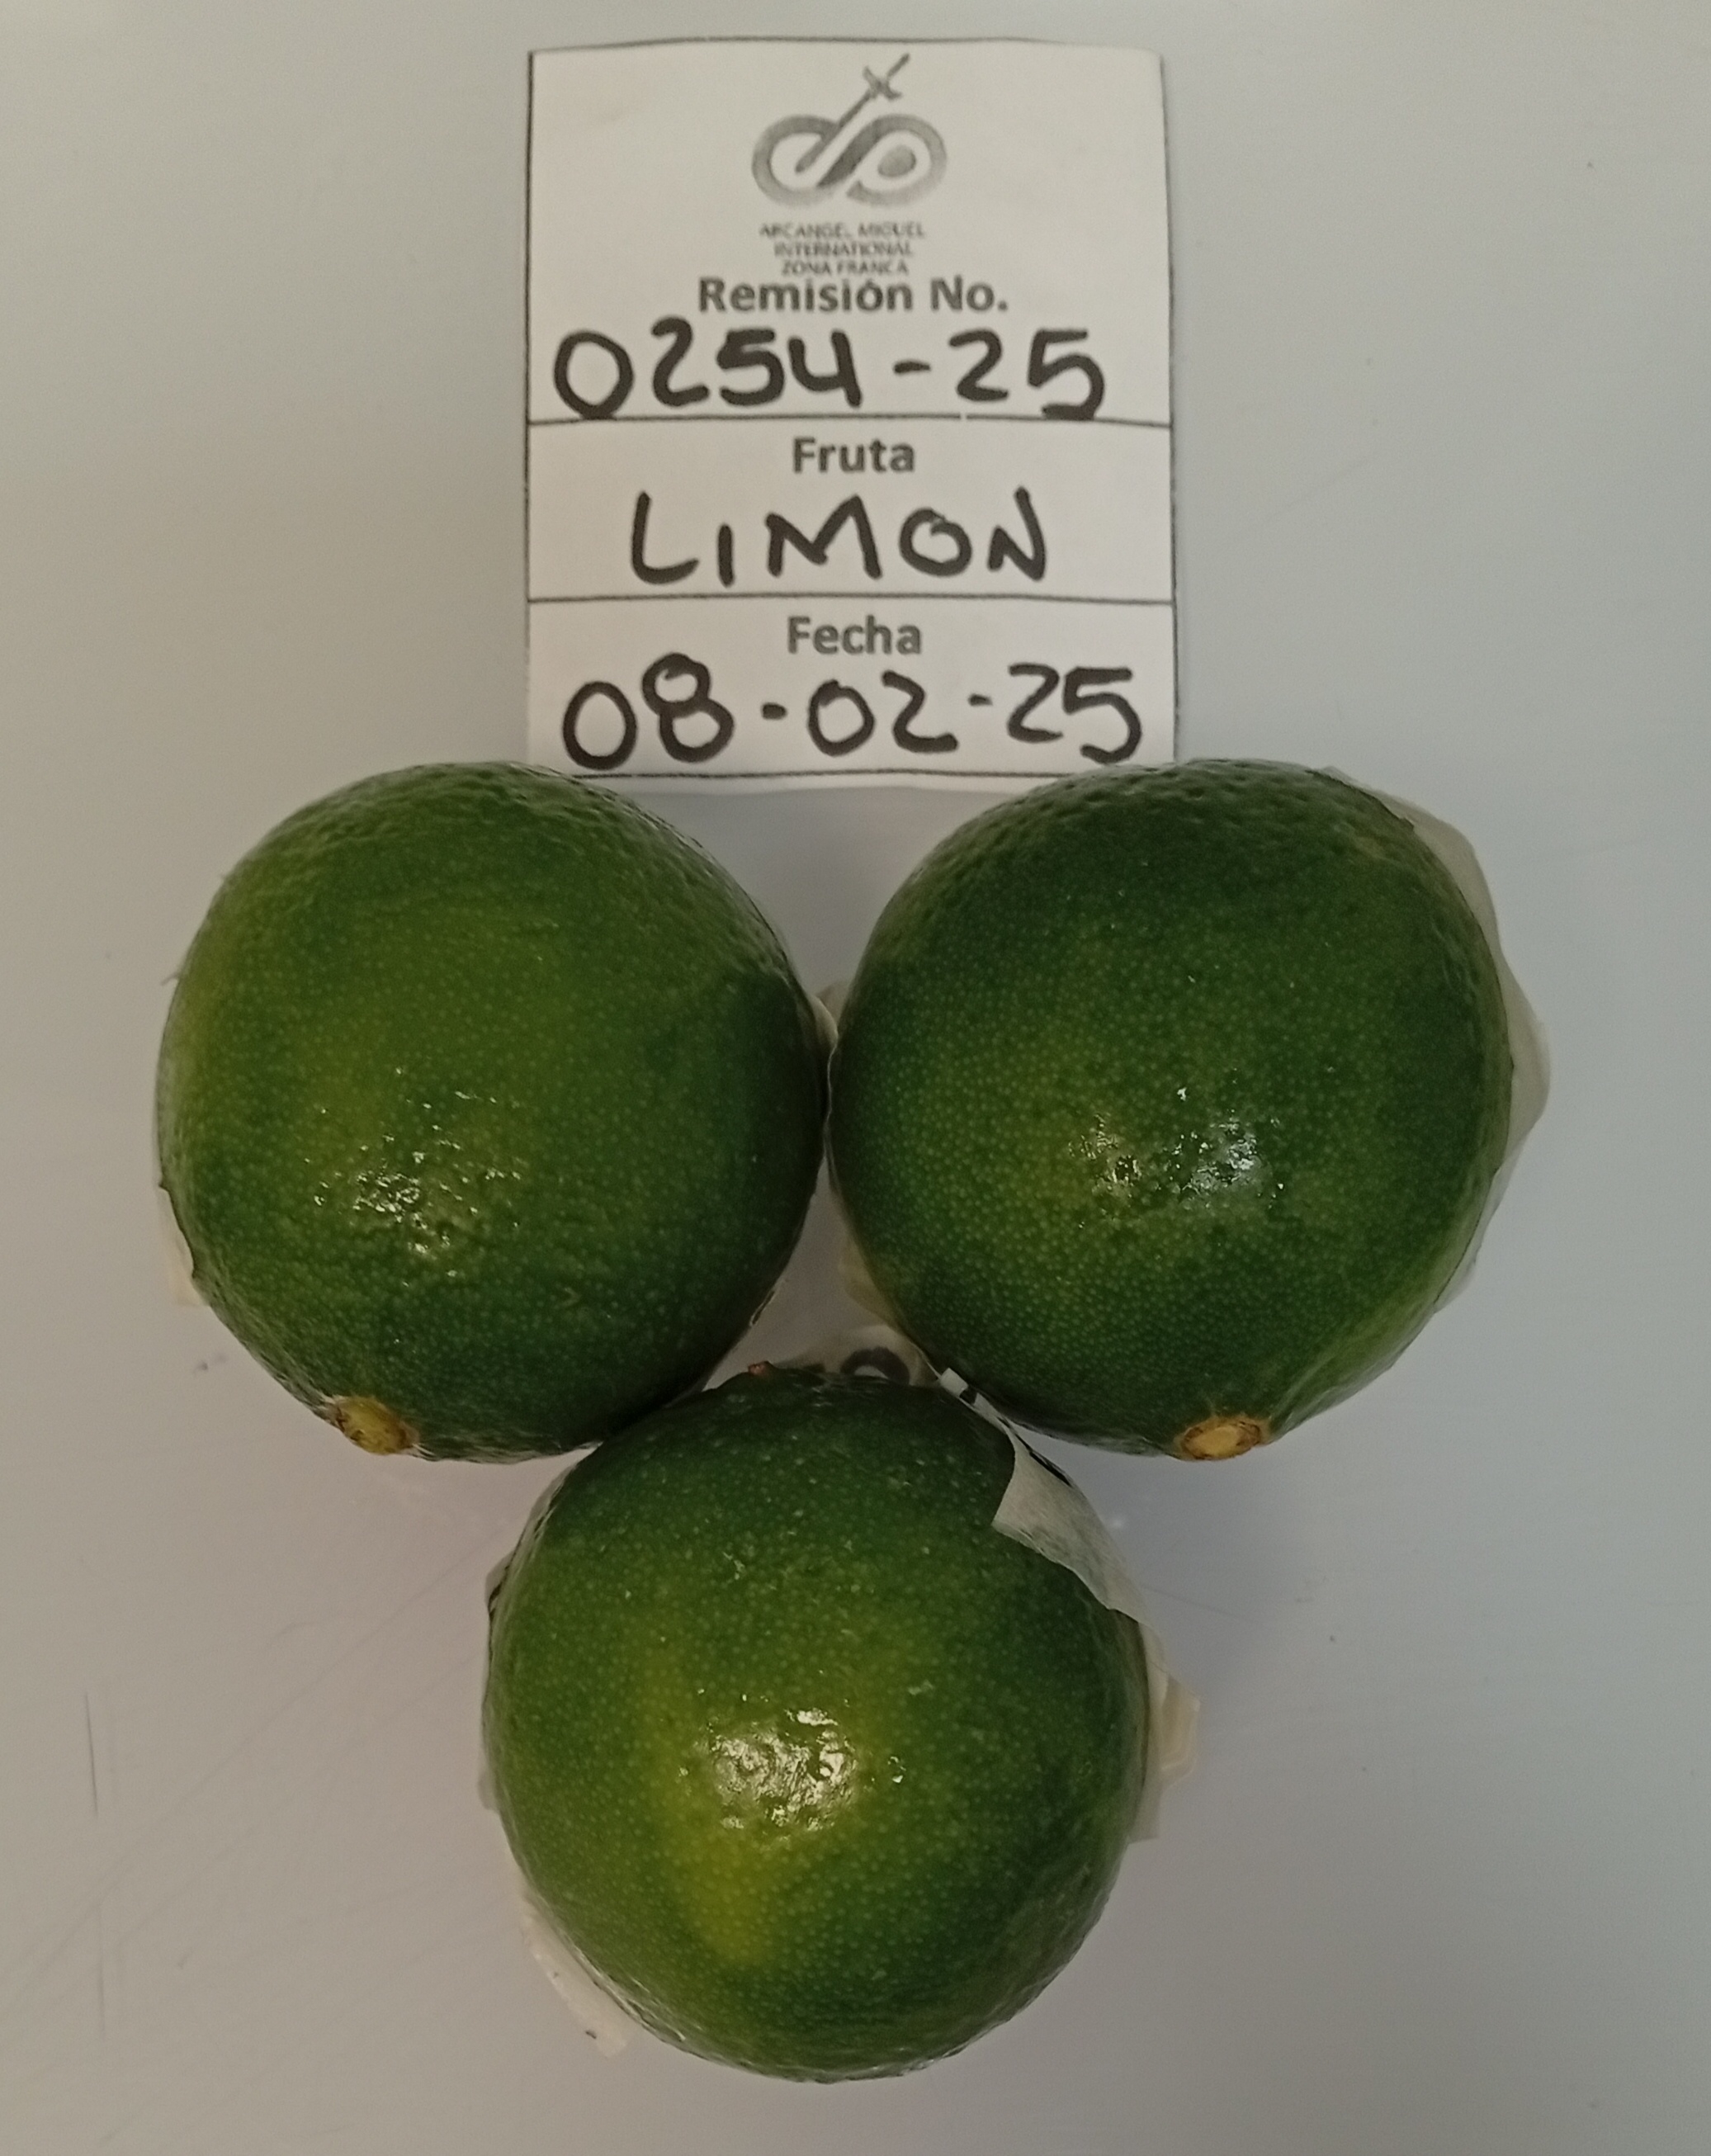 ARCANGEL MIGUEL
INTERNATIONAL
ZONA FRANCA
Remisión No.
0254-25
Fruta
LIMON
Fecha
08-02-25